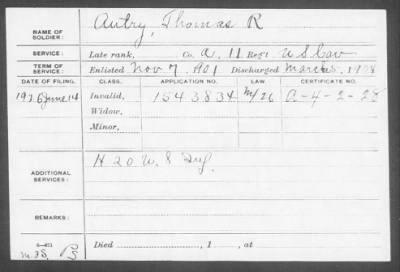 NAME OF SOLDIER: Autry, Thomas R
SERVICE: Late rank, Co. A, 11 Reg't U S Cav
TERM OF SERVICE: Enlisted Nov 7, 1901 Discharged Mar , 1908
DATE OF FILING. CLASS. APPLICATION NO. LAW. CERTIFICATE NO.
1926 June 14 Invalid, 1543834 A-4-2-28
Widow,
Minor,
ADDITIONAL SERVICES: H 20 U S Inf.
REMARKS:
Died , 1 , at